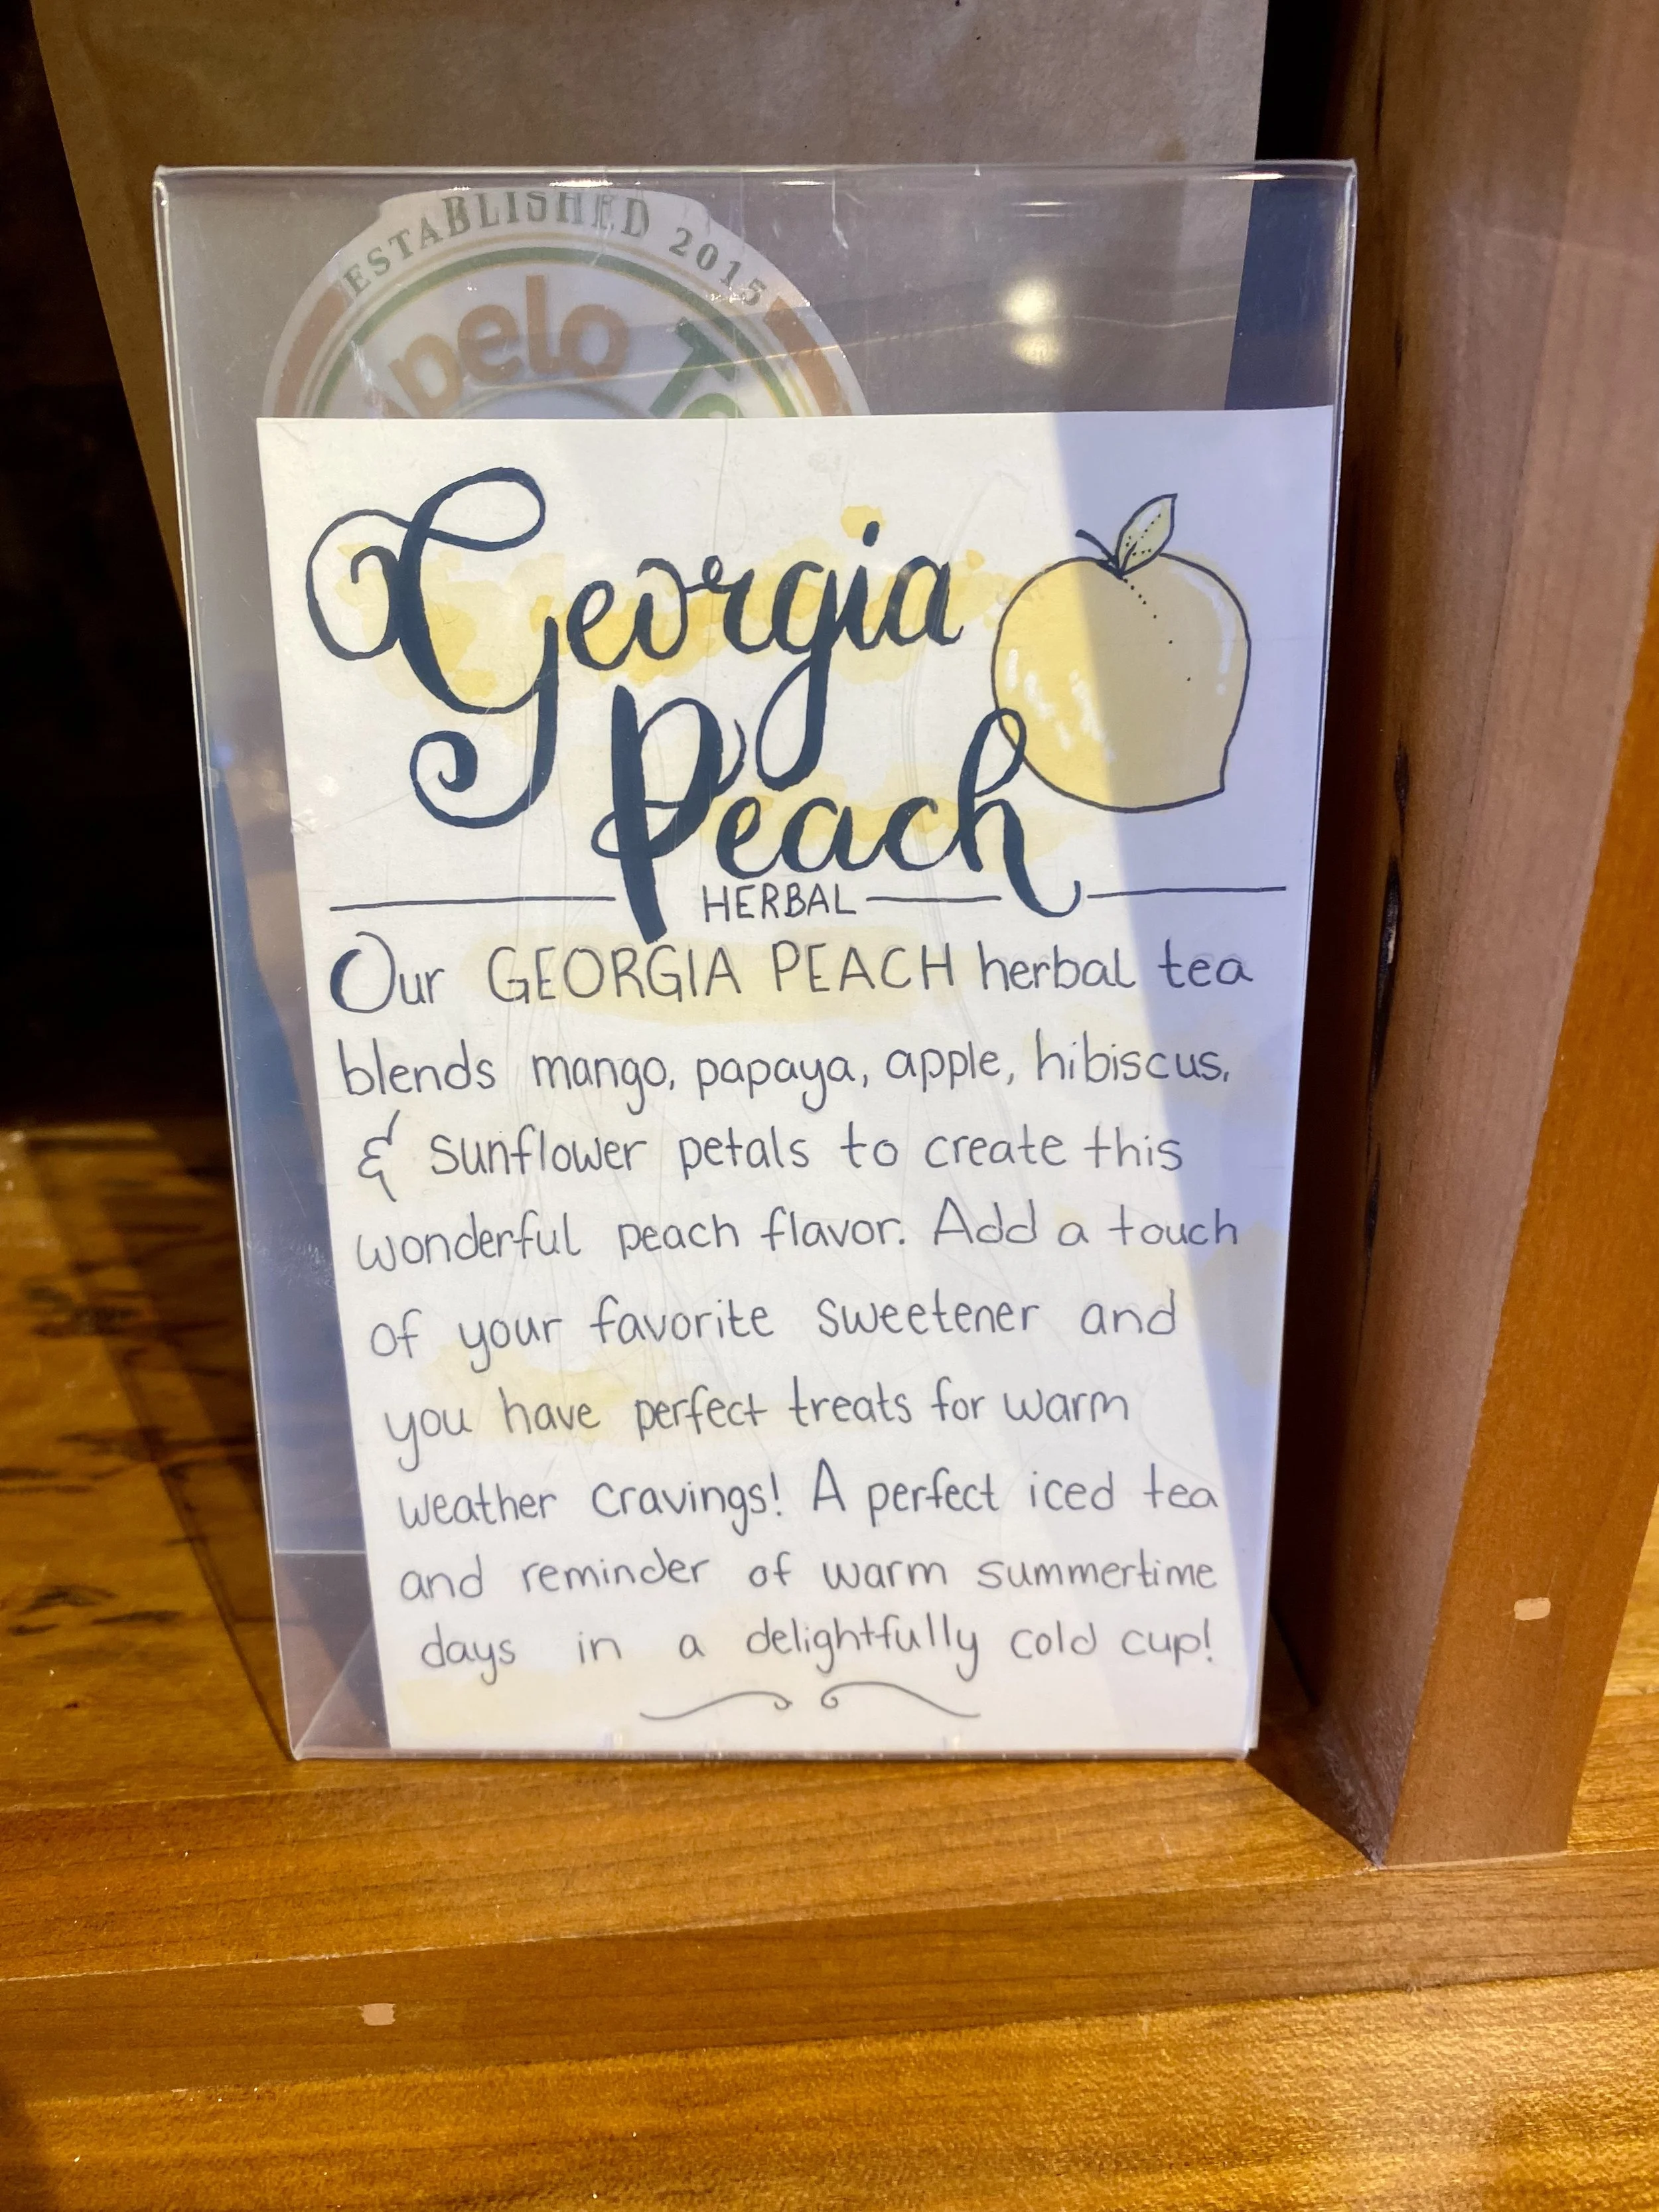 ESTABLISHED 2015
Georgia
Peach
HERBAL
Our GEORGIA PEACH herbal tea
blends mango, papaya, apple, hibiscus,
& sunflower petals to create this
wonderful peach flavor. Add a touch
of your favorite sweetener and
you have perfect treats for warm
weather cravings! A perfect iced tea
and reminder of warm summertime
days in a delightfully cold cup!